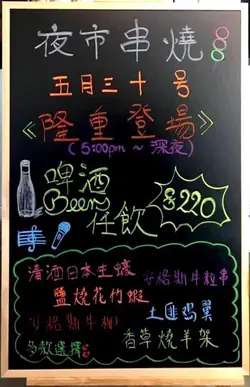 夜市串燒
五月三十號
《隆重登場》
(5:00pm ~ 深夜)
啤酒
Beer
任飲
$220
清酒日本生蠔
好格斯牛粒串
鹽燒花竹蝦
土匪鸡翼
好格斯牛柳
香草燒羊架
多款選擇